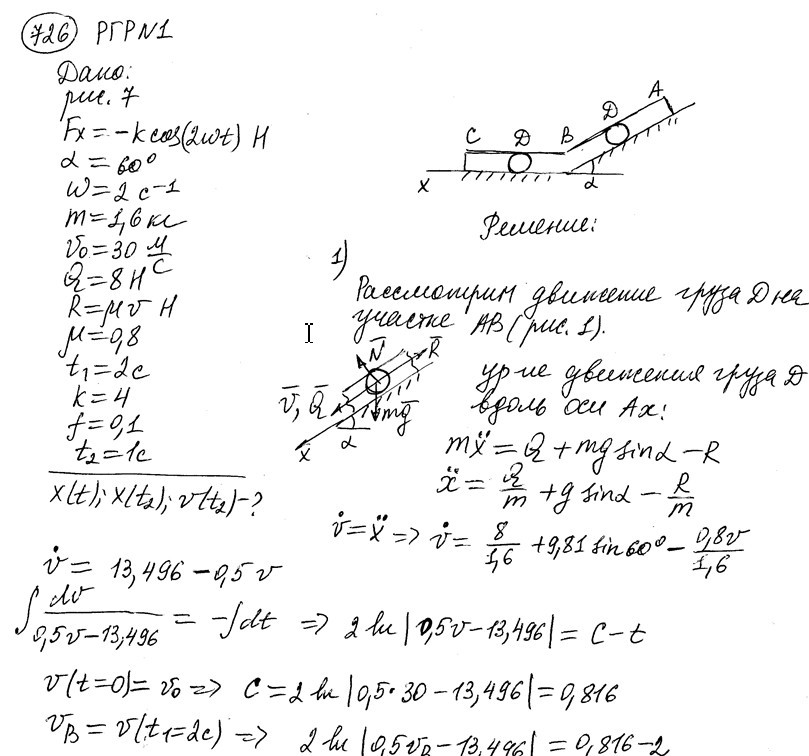 726 РГР№1
Дано:
рис. 7
Fx = -k cos(2ωt) Н
α = 60°
ω = 2 с⁻¹
m = 1,6 кг
v₀ = 30 м/с
Q = 8 Н
R = μv Н
μ = 0,8
t₁ = 2с
k = 4
f = 0,1
t₂ = 1с
x(t); x(t₂); v(t₂) - ?
C D B D A
x α
Решение:
1)
Рассмотрим движение груза D на
участке AB (рис. 1).
N̅ R̅
v̅, Q̅ mg̅
x α
ур-ие движения груза D
вдоль оси Ax:
mẍ = Q + mg sinα - R
ẍ = Q/m + g sinα - R/m
v̇ = ẍ => v̇ = 8/1,6 + 9,81 sin60° - 0,8v/1,6
v̇ = 13,496 - 0,5v
∫ dv/(0,5v - 13,496) = -∫dt => 2 ln|0,5v - 13,496| = C - t
v(t=0) = v₀ => C = 2 ln|0,5·30 - 13,496| = 0,816
v_B = v(t₁=2с) => 2 ln|0,5v_B - 13,496| = 0,816 - 2